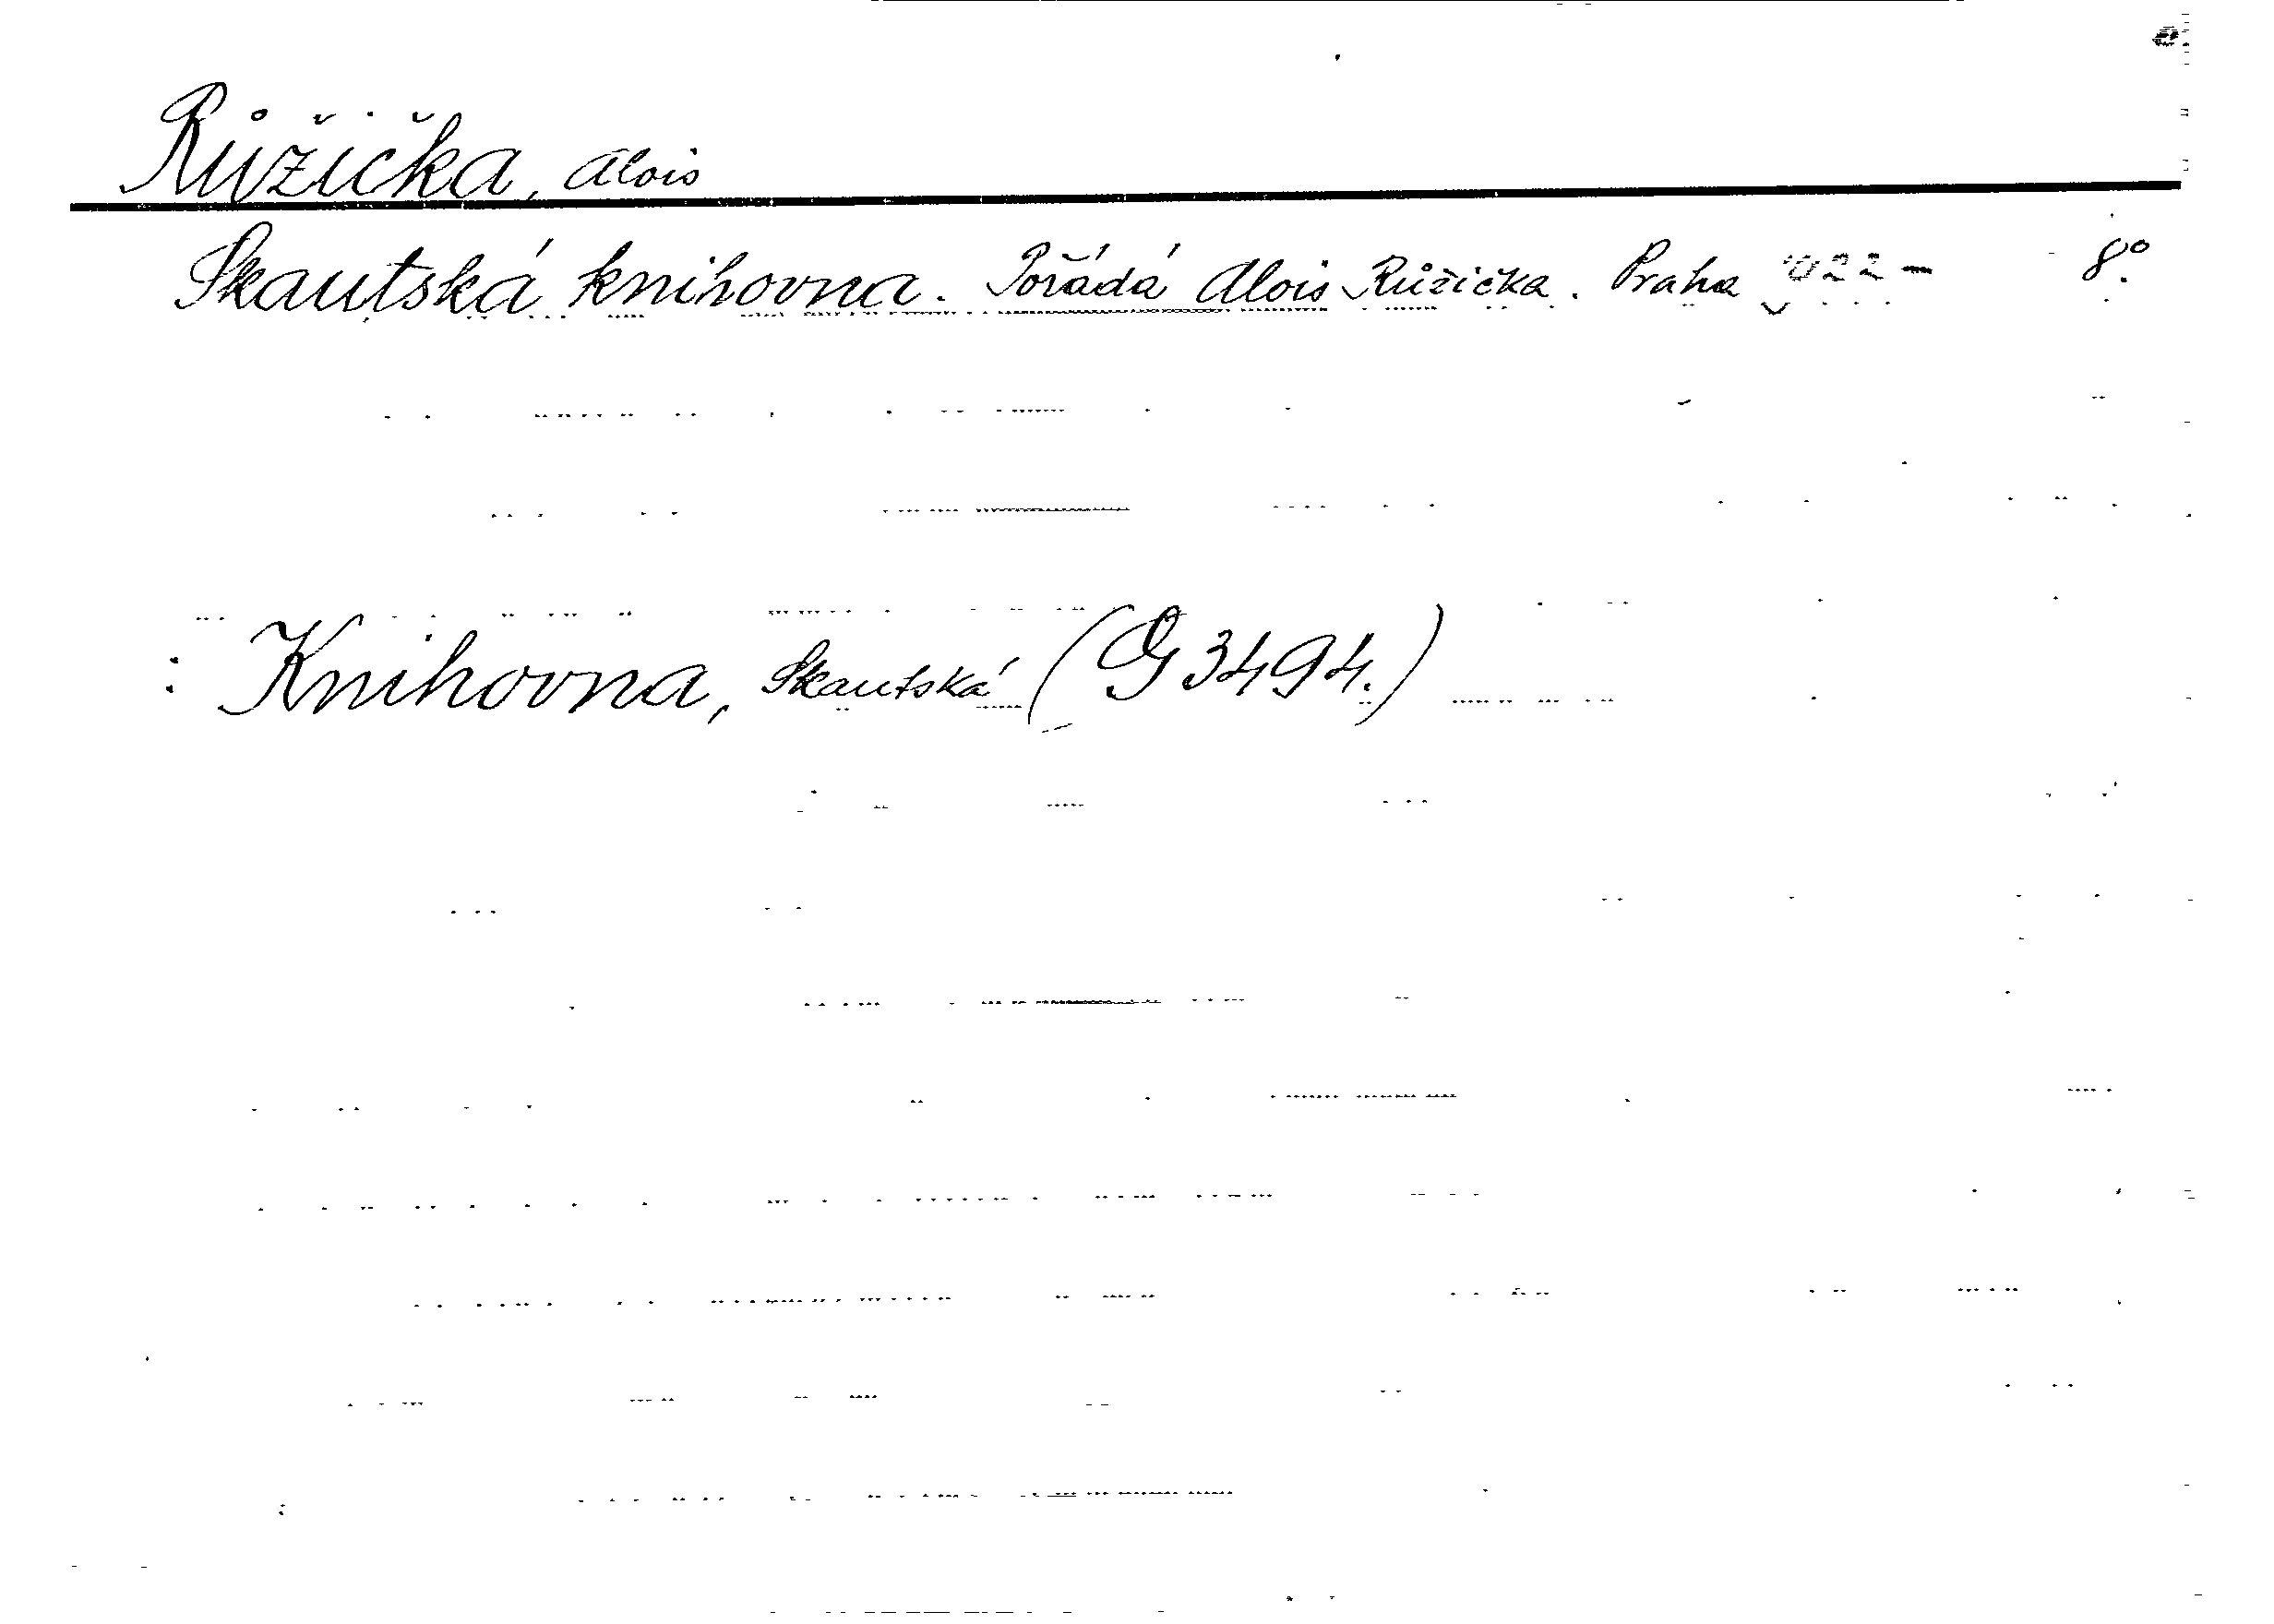 Růžička, Alois
Skautská knihovna. Pořádá Alois Růžička. Praha 922 - 8°.
: Knihovna, Skautská (G 3494.)